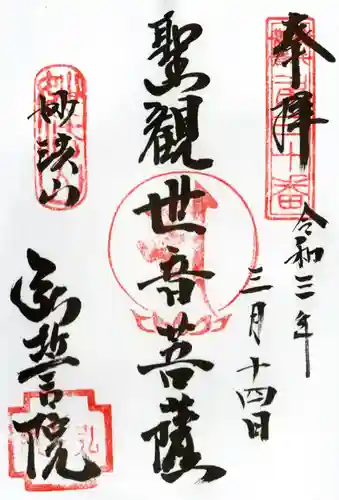 奉拝
令和三年
三月十四日
聖観世音菩薩
妙法山
誓院